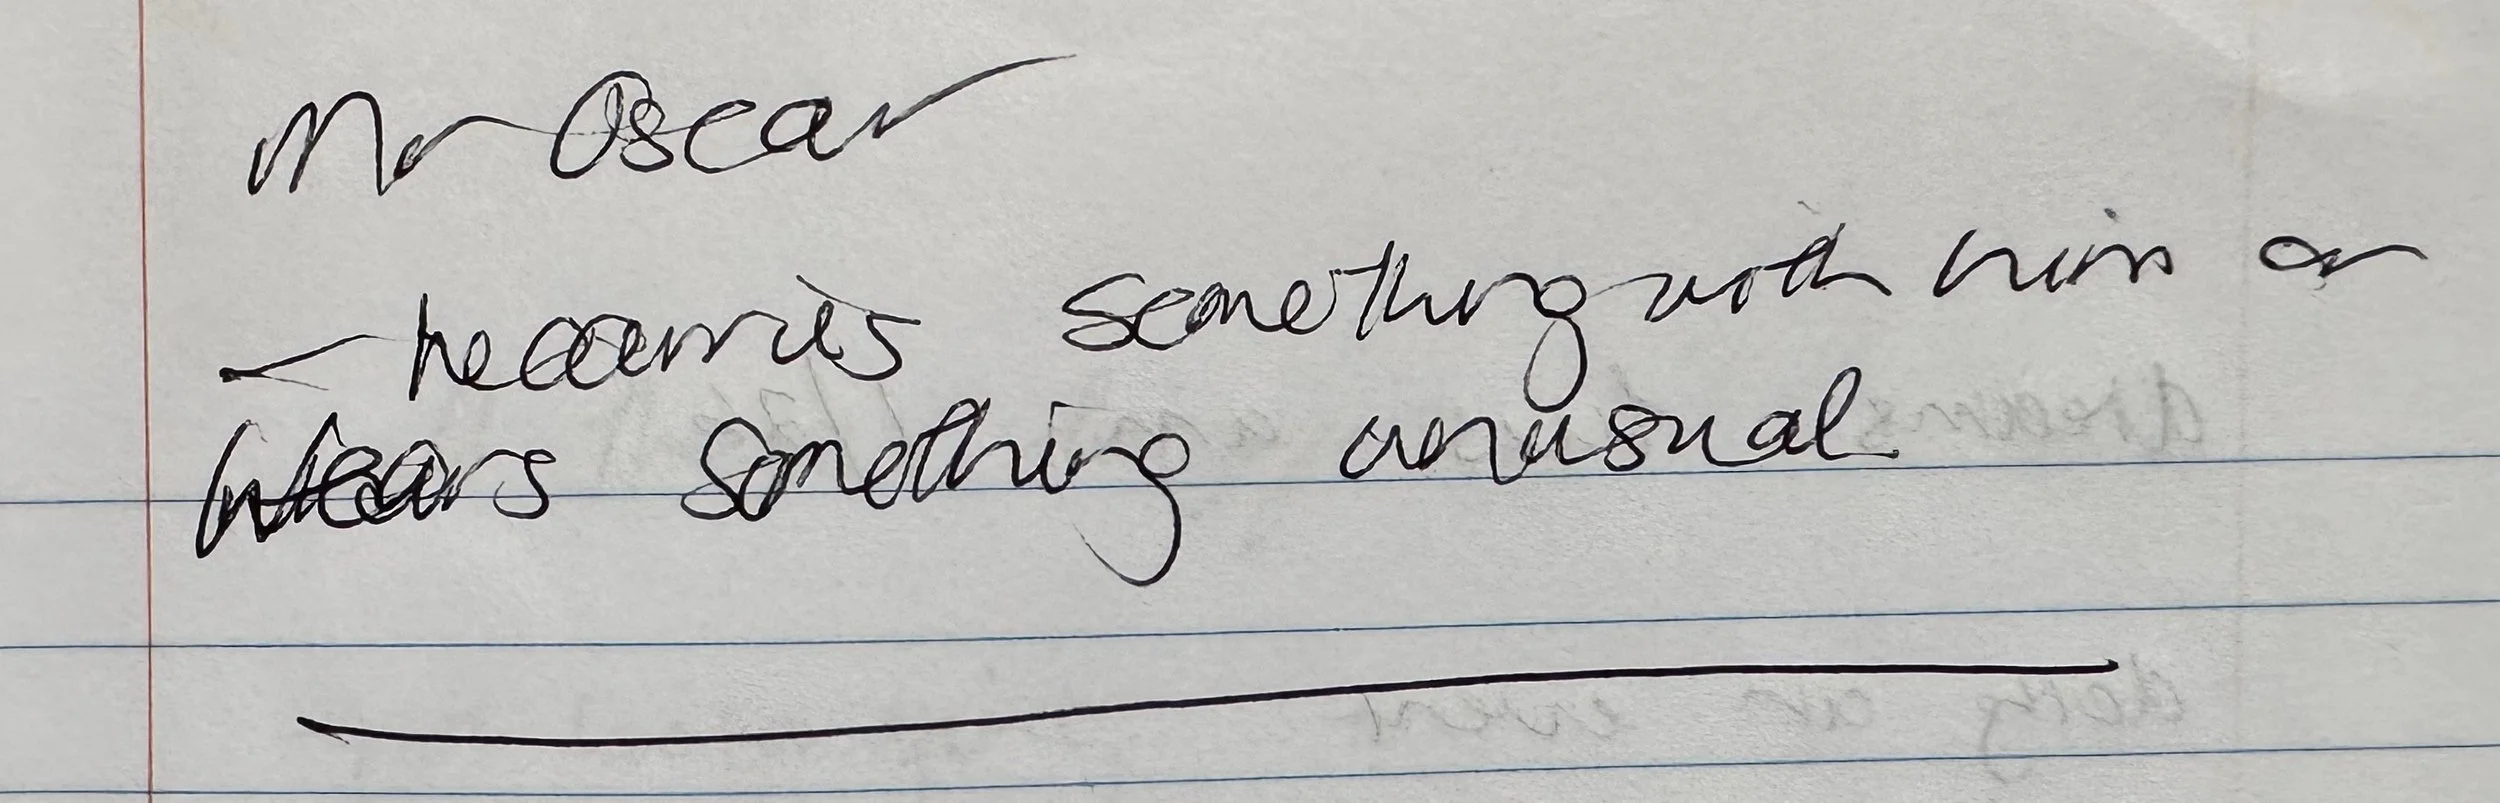 Mr Oscar
- he carries something with him or
wears something unusual